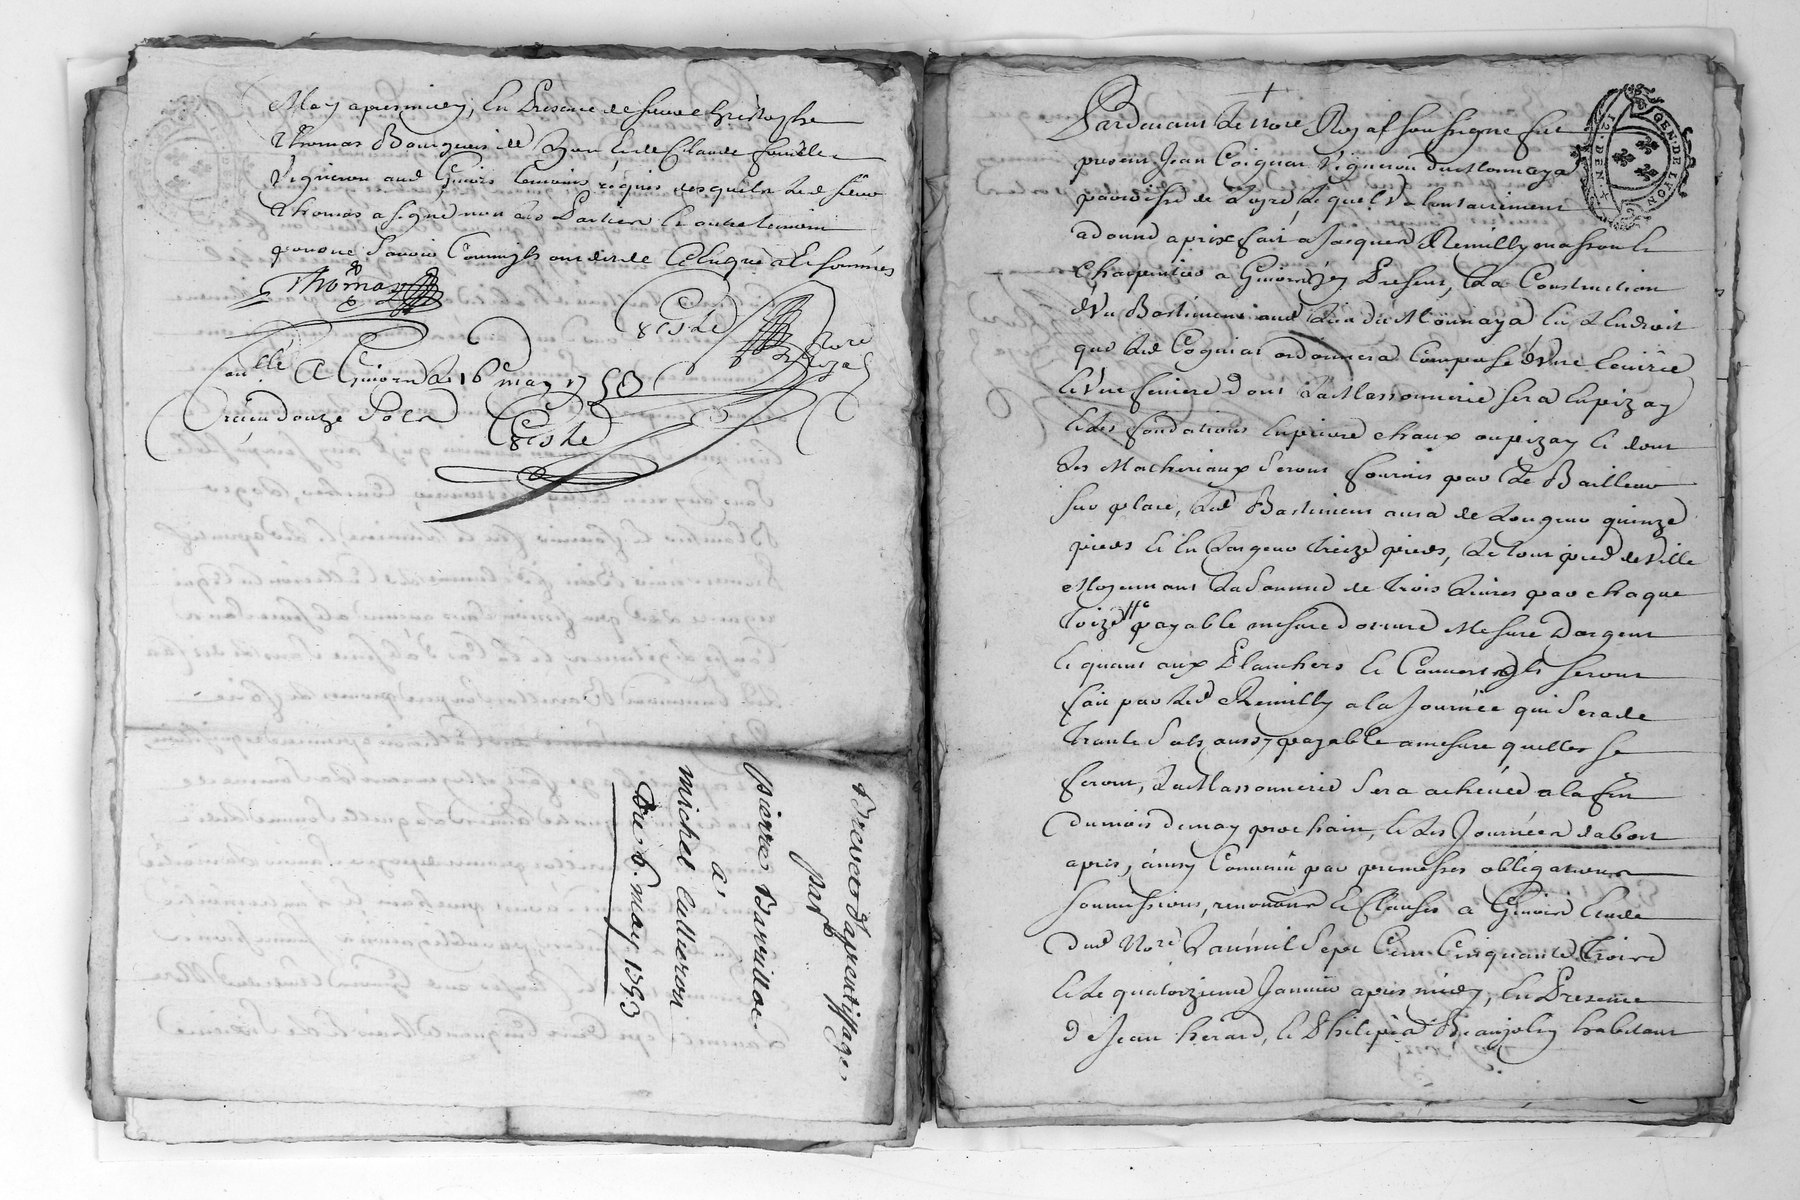 May apres midy, En Presence de sieur Christophe
Thomas Bourgeois de Lyon et de Claude
Vigneron aud Givors temoins requis desquels led sieur
Thomas a signé non les Parties ni autre temoin
pour ne Scavoir Ecrire
Thomas
Coste
Nore
Royal
Conllé A Givors le 16e may 1753
Receu douze Sols
Coste
Brevet d'aprentissage,
par
pierre
à
michel Cullieron
Du 6. may 1753
Pardevant Le Nore Royal soussigné fut
present Jean Coignat Vigneron du Monnaya
paroisse de Loyre Lequel Volontairement
a donné a prix fait a Jacques Remilly masson et
Charpentier a Givors y Present, La Construction
d'Vn Bastiment aud Lieu du Monnaya En L'Endroit
que Led Coignat ordonnera Composé d'Vne Ecuirie
et Vne feniere dont La Massonnerie sera En pizay
et Les fondations En pierre chaux ou pizay et dont
Les Matheriaux Seront fournis par Le Bailleur
sur place, Led Bastiment aura de Longeur quinze
pieds et En Largeur treize pieds, Le tout pied de Ville
Moyennant La Somme de trois Livres par chaque
Toize payable mesure d'oeuvre Mesure D'argent
et quant aux Planchers et Couverts ils seront
fait par Led Remilly a la Journée qui Sera de
Trante Sols aussy payable a mesure quelles se
feront, La Massonnerie Sera achevée a la fin
du mois de may prochain, et Les Journées dabort
apres, ainsy Convenu par promesses obligations
soumissions, renonons et Clauses a Givors Etude
dud Nore L'an mil Sept Cent Cinquante Trois
et Le quatorzieme Janvier apres midy, En Presence
de Jean herard, et Philipe Beaujolin habitant
GEN. DE LYON
12 DEN